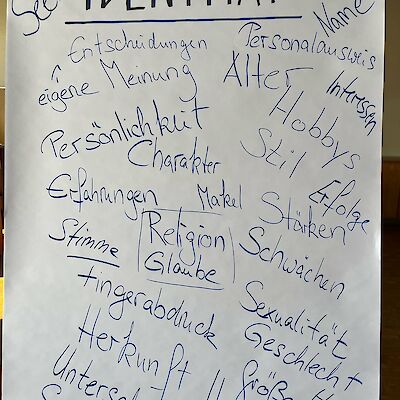 IDENTITÄT
Name
Entscheidungen
Personalausweis
eigene Meinung
Alter
Interessen
Hobbys
Persönlichkeit
Charakter
Stil
Erfahrungen
Makel
Stärken
Erfolge
Stimme
Religion
Glaube
Schwächen
Fingerabdruck
Sexualität
Geschlecht
Herkunft
Größe